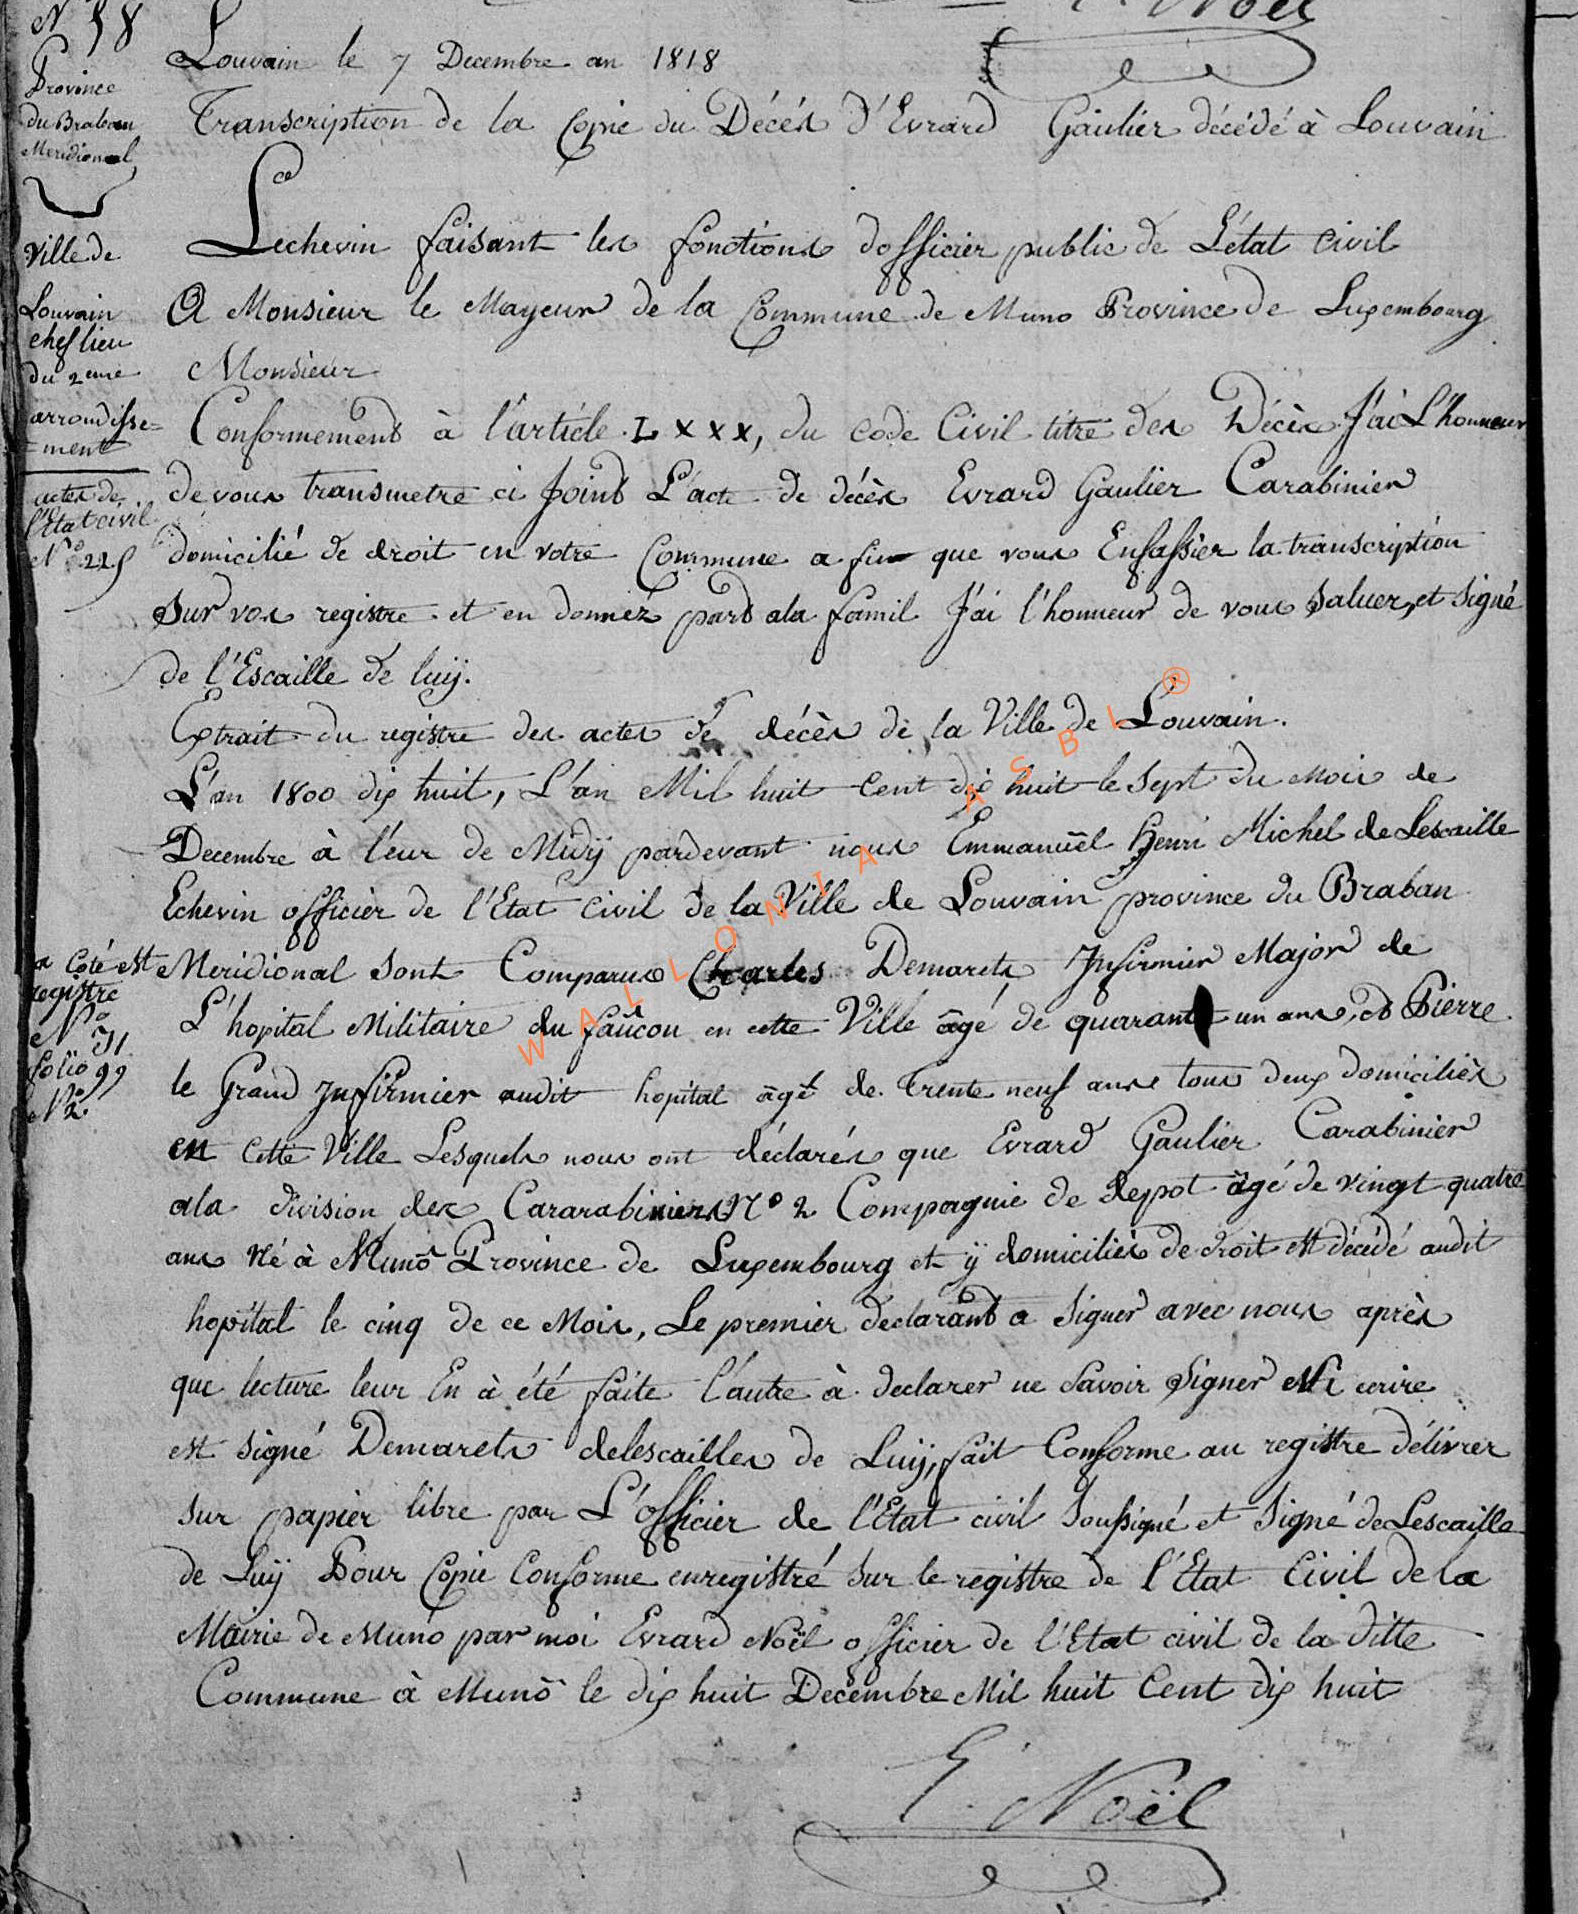 E. Noël
N° 58
Province
du Braban
Meridional
Ville de
Louvain
chef lieu
du 2eme
arrondisse=
=ment
actes de
l'Etat civil
N° 225
a coté est
registre
N°
folio 99
N° 2.
Louvain le 7 Decembre an 1818
Transcription de la Copie du Décés d'Evrard Gaulier décédé à Louvain
Lechevin faisant les fonctions dofficier public de L'état civil
A Monsieur le Mayeur de la Commune de Muno Province de Luxembourg
Monsieur
Conformement à l'article LXXX, du code Civil titre des Décès J'ai L'honneur
de vous transmetre ci Joint L'acte de décès Evrard Gaulier Carabinier
domicilié de droit en votre Commune a fin que vous Enfassier la transcription
sur vos registre et en donnéz part ala famil J'ai l'honneur de vous saluer, et signé
de l'Escaille de luij.
Extrait du registre des actes de décès de la Ville de Louvain.
L'an 1800 dix huit, L'an Mil huit Cent dix huit le sept du Mois de
Decembre à l'eur de Midij pardevant nous Emmanuël Henri Michel de Lescaille
Echevin officier de l'Etat Civil de la Ville de Louvain province du Braban
Meridional sont Comparus Charles Demarets Infirmier Major de
L'hopital Militaire du faucon en cette Ville âgé de quarante un ans, et Pierre
le Grand Infirmier audit hopital âgé de Trente neuf ans tous deux domiciliés
en Cette Ville Lesquels nous ont déclarés que Evrard Gaulier Carabinier
ala division des Cararabiniers N° 2 Compagnie de depot âgé de vingt quatre
ans né à Munô Province de Luxembourg et ÿ domiciliés de droit est décédé audit
hopital le cinq de ce Mois, Le premier déclarant a signer avec nous après
que lecture leur En à été faite l'autre à declarer ne savoir signer Ni ecrire
est signé Demarets delescailles de Luij, fait Conforme au registre délivrer
sur papier libre par L'officier de l'Etat civil soussigné et signé de Lescaille
de Luij Pour Copie Conforme enregistré sur le registre de l'Etat Civil de la
Mairie de Muno par moi Evrard Noël officier de l'Etat civil de la ditte
Commune à Munô le dix huit Decembre Mil huit Cent dix huit
E. Noël
WALLONIA ASBL ®